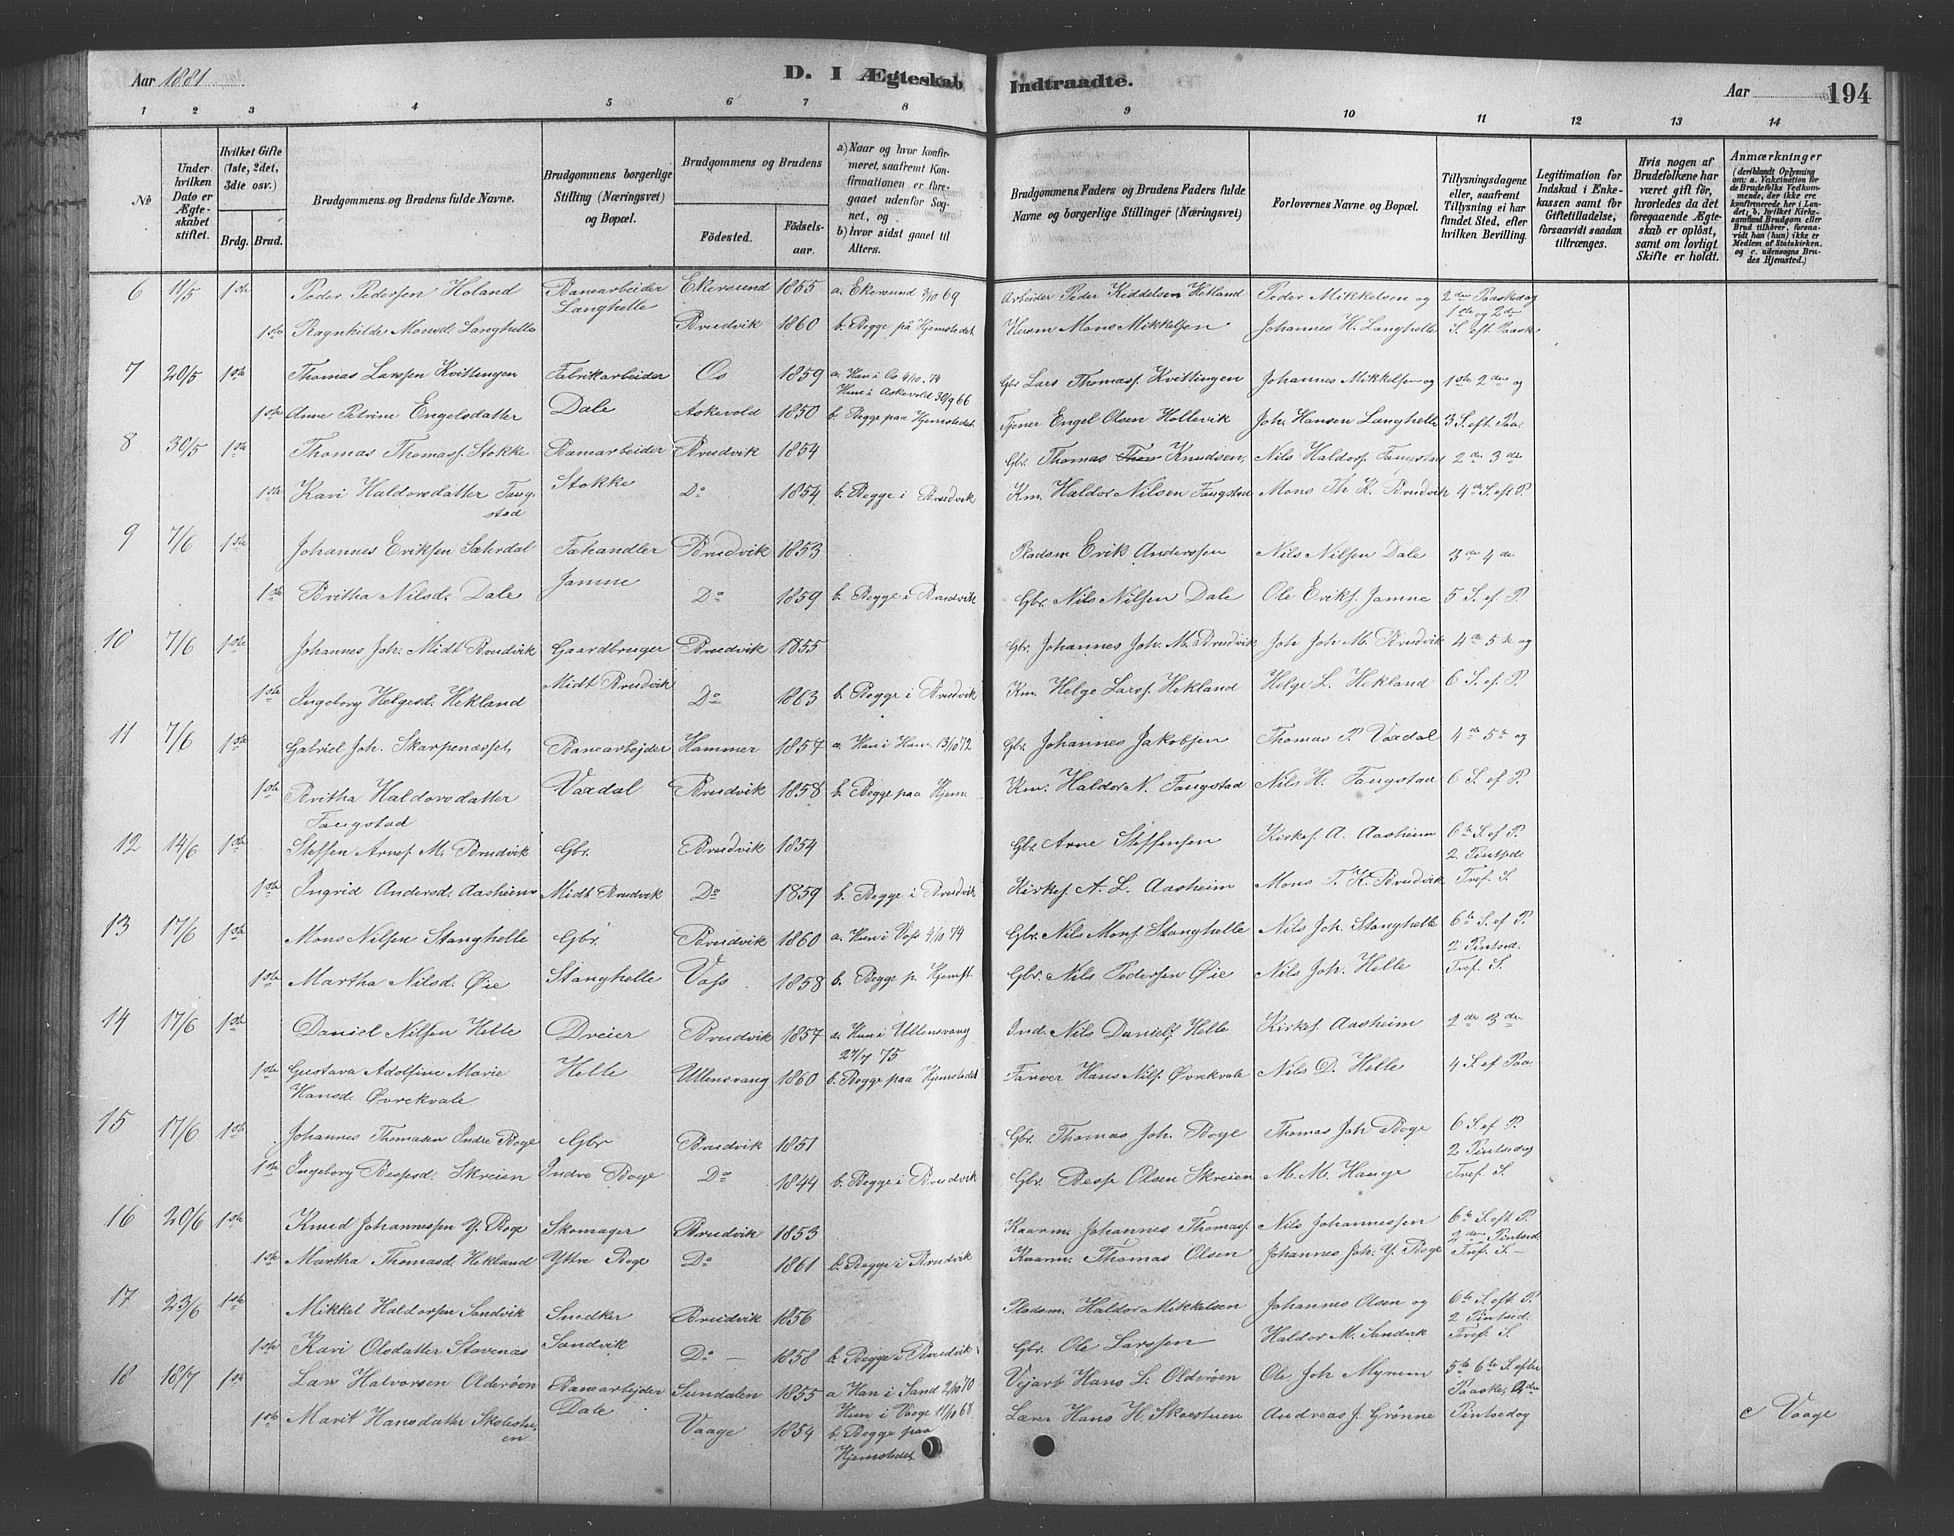 Aar 1881
D. I Ægteskab Indtraadte.
Aar 194
1 2 3 4 5 6 7 8 9 10 11 12 13 14
No
Under hvilken Dato er Ægteskabet stiftet.
Hvilket Gifte (1ste, 2det, 3die osv.)
Brdg. Brud.
Brudgommens og Brudens fulde Navne.
Brudgommens borgerlige Stilling (Næringsvei) og Bopæl.
Brudgommens og Brudens
Fødested.
Fødselsaar.
a) Naar og hvor konfirmeret, saafremt Konfirmationen er foregaaet udenfor Sognet, og
b) hvor sidst gaaet til Alters.
Brudgommens Faders og Brudens Faders fulde Navne og borgerlige Stillinger (Næringsvei)
Forlovernes Navne og Bopæl.
Tillysningsdagene eller, saafremt Tillysning ei har fundet Sted, efter hvilken Bevilling.
Legitimation for Indskud i Enkekassen samt for Giftetilladelse, forsaavidt saadan tiltrænges.
Hvis nogen af Brudefolkene har været gift før, hvorledes da det foregaaende Ægteskab er opløst, samt om lovligt Skifte er holdt.
Anmærkninger (deriblandt Oplysning om: a. Vakcination for de Brudefolks Vedkommende, der ikke ere konfirmerede her i Landet; b. hvilket Kirkesamfund Brudgom eller Brud tilhører, forsaavidt han (hun) ikke er Medlem af Statskirken. og c. udensogns Brudes Hjemsted.)
6 11/5 1ste Peder Pedersen Høland Banearbeider Ekersund 1855 a. Ekersund 3/10 69 Arbeider Peder Keddelsen Hetland Peder Mikkelsen og 2den Paaskedag
1ste Ragnhilde Monsd. Langhelle Langhelle Brudvik 1860 b. Begge på Hjemstedet Husm Mons Mikkelsen Johannes H. Langhelle 1ste og 2den S. eft Paaske
7 20/5 1ste Thomas Larssen Kvittingen Fabrikarbeider Os 1859 a. Han i Os 4/10 74 Gbr Lars Thomass. Kvittingen Johannes Mikkelsen og 1ste 2den og
Hun i Askevold 30/9 66
1ste Anne Petrine Engelsdatter Dale Askevold 1850 b. Begge paa Hjemstedet Tjener Engel Olsen Hollevik Joh. Hansen Langhelle 3 S. eft. Paa.
8 30/5 1ste Thomas Thomass. Stokke Banearbeider Brudvik 1854 Gbr. Thomas Knudsen, Nils Haldors. Faugstad 2den 3den
1ste Kari Haldorsdatter Faugstad Stokke Do 1854 b. Begge i Brudvik Km. Haldor Nilsen Faugstad Mons Th K. Brudvik 4de S. eft P.
9 7/6 1ste Johannes Eriksen Sæterdal Fæhandler Brudvik 1853 Pladsm Erik Anderssen Nils Nilsen Dale 3die 4de
1ste Britha Nilsd. Dale Jamne Do 1859 b. Begge i Brudvik Gbr. Nils Nilsen Dale Ole Eriks. Jamne 5 S. ef. P.
10 7/6 1ste Johannes Joh. Midt Brudvik Gaardbruger Brudvik 1855 Gbr. Johannes Joh. M. Brudvik Joh Joh M. Brudvik 4de 5te og
1ste Ingeborg Helgesd. Hekland Midt Brudvik Do 1863 b. Begge i Brudvik Km. Helge Larss. Hekland Helge L. Hekland 6 S. ef. P.
11 7/6 1ste Gabriel Joh. Skarpenæsset, Banearbejder Hammer 1857 a. Han i Ham. 13/10 72 Gbr Johannes Jakobsen Thomas P. Vaxdal 4de 5te og
1ste Britha Haldorsdatter Faugstad Vaxdal Brudvik 1858 b. Begge paa Hjem Km. Haldor N. Faugstad Nils H. Faugstad 6 S. ef P.
12 14/6 1ste Steffen Arnes. M. Brudvik Gbr. Brudvik 1854 Gbr Arne Steffensen Kirkes. A. Aasheim 6te S. ef P. 2. Pintsed.
1ste Ingrid Andersd. Aasheim Midt Brudvik Do 1859 b. Begge i Brudvik Kirkes. A. L. Aasheim Mons T. K. Brudvik Tref. S.
13 17/6 1ste Mons Nilsen Stanghelle Gbr. Brudvik 1860 a. Hun i Vos 4/10 74 Gbr. Nils Mons. Stanghelle Nils Joh. Stanghelle 6te S. ef. P. 2 Pintsed.
1ste Martha Nilsd. Øie Stanghelle Voss 1858 b. Begge p. Hjemst Gbr. Nils Pedersen Øie Nils Joh. Helle Tref. S.
14 17/6 1ste Daniel Nilsen Helle Dreier Brudvik 1857 a. Hun i Ullensvang 27/7 75 Ind. Nils Daniels. Helle Kirkes. Aasheim 2den 3den
1ste Gustava Adolfine Marie Hansd. Øvrekvale Helle Ullensvang 1860 b. Begge paa Hjemstedet Farver Hans Nils. Øvrekvale Nils D. Helle 4 S. ef Paa.
15 17/6 1ste Johannes Thomasen Indre Boge Gbr Brudvik 1851 Gbr. Thomas Joh. Boge Thomas Joh Boge 6 S. ef P 2 Pintsedag
1ste Ingeborg Bespsd. Skreien Indre Boge Do 1844 b. Begge i Brudvik Gbr. Besp Olsen Skreien M. M. Hauge Tref. S.
16 20/6 1ste Knud Johannessen Y. Boge Skomager Brudvik 1853 Kaarm. Johannes Thomass. Nils Johannessen 6te S. eft P. 2den Pintsed.
1ste Martha Thomasd. Hekland Ytre Boge Do 1861 b. Begge i Brudvik Kaarm. Thomas Olsen Johannes Joh. Y. Boge Tref. S.
17 23/6 1ste Mikkel Haldorsen Sandvik Snedker Brudvik 1856 Pladsm. Haldor Mikkelsen Johannes Olsen og 6te S. eft P. 2 Pintsed.
1ste Kari Olsdatter Stavenæs Sandvik Do 1858 b. Begge i Brudvik Gbr. Ole Larssen Haldor M. Sandvik Tref. S.
18 18/7 1ste Lars Halvorsen Olderøen Banearbejder Sundalen 1855 a Han i Sand 2/10 70 Vejarb Hans L. Olderøen Ole Joh Myrum 5te 6te S. efter Paaske, 2den
1ste Marit Hansdatter Skolestuen Dale Vaage 1854 Hun i Vaage 11/10 68 b. Begge paa Hjemstedet Lærer Hans H. Skoestuen Andreas J. Grønne Pintsedag c Vaage